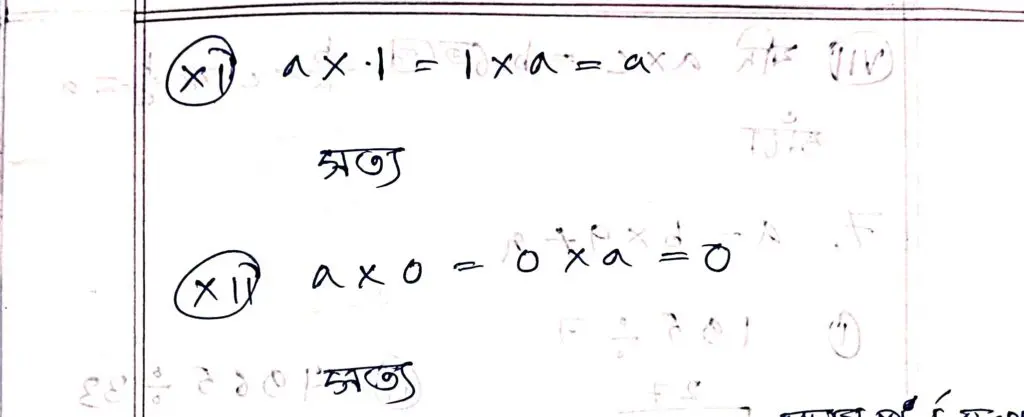 (xi) a × 1 = 1 × a = a
সত্য
(xii) a × 0 = 0 × a = 0
সত্য